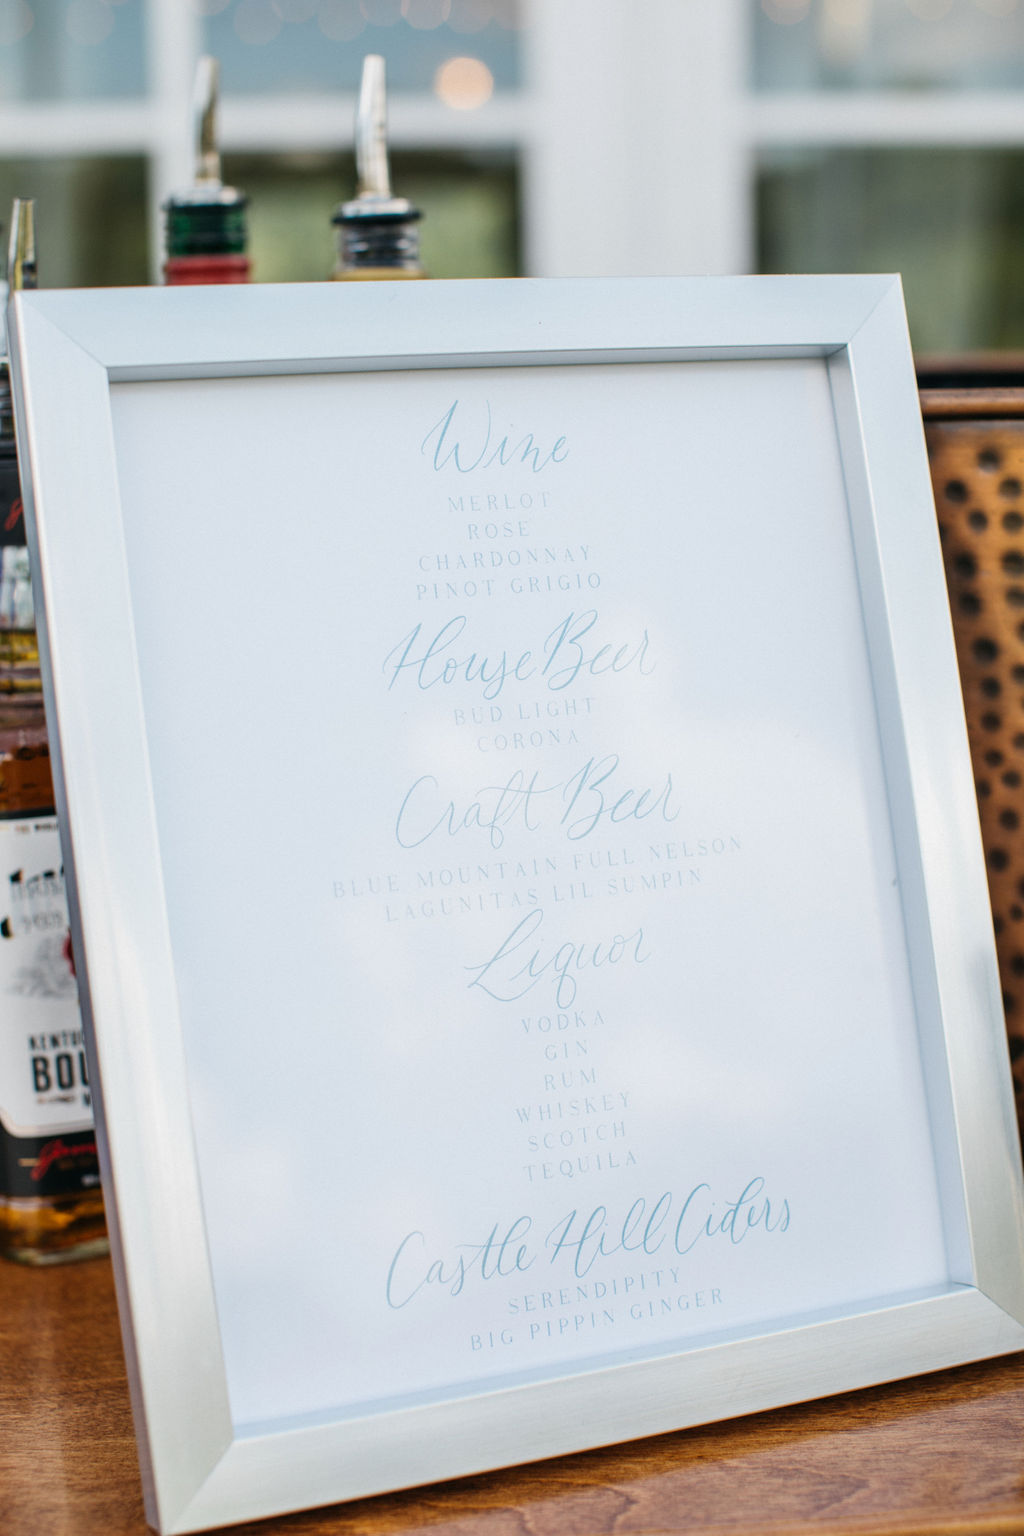 Wine
MERLOT
ROSE
CHARDONNAY
PINOT GRIGIO
House Beer
BUD LIGHT
CORONA
Craft Beer
BLUE MOUNTAIN FULL NELSON
LAGUNITAS LIL SUMPIN
Liquor
VODKA
GIN
RUM
WHISKEY
SCOTCH
TEQUILA
Castle Hill Ciders
SERENDIPITY
BIG PIPPIN GINGER